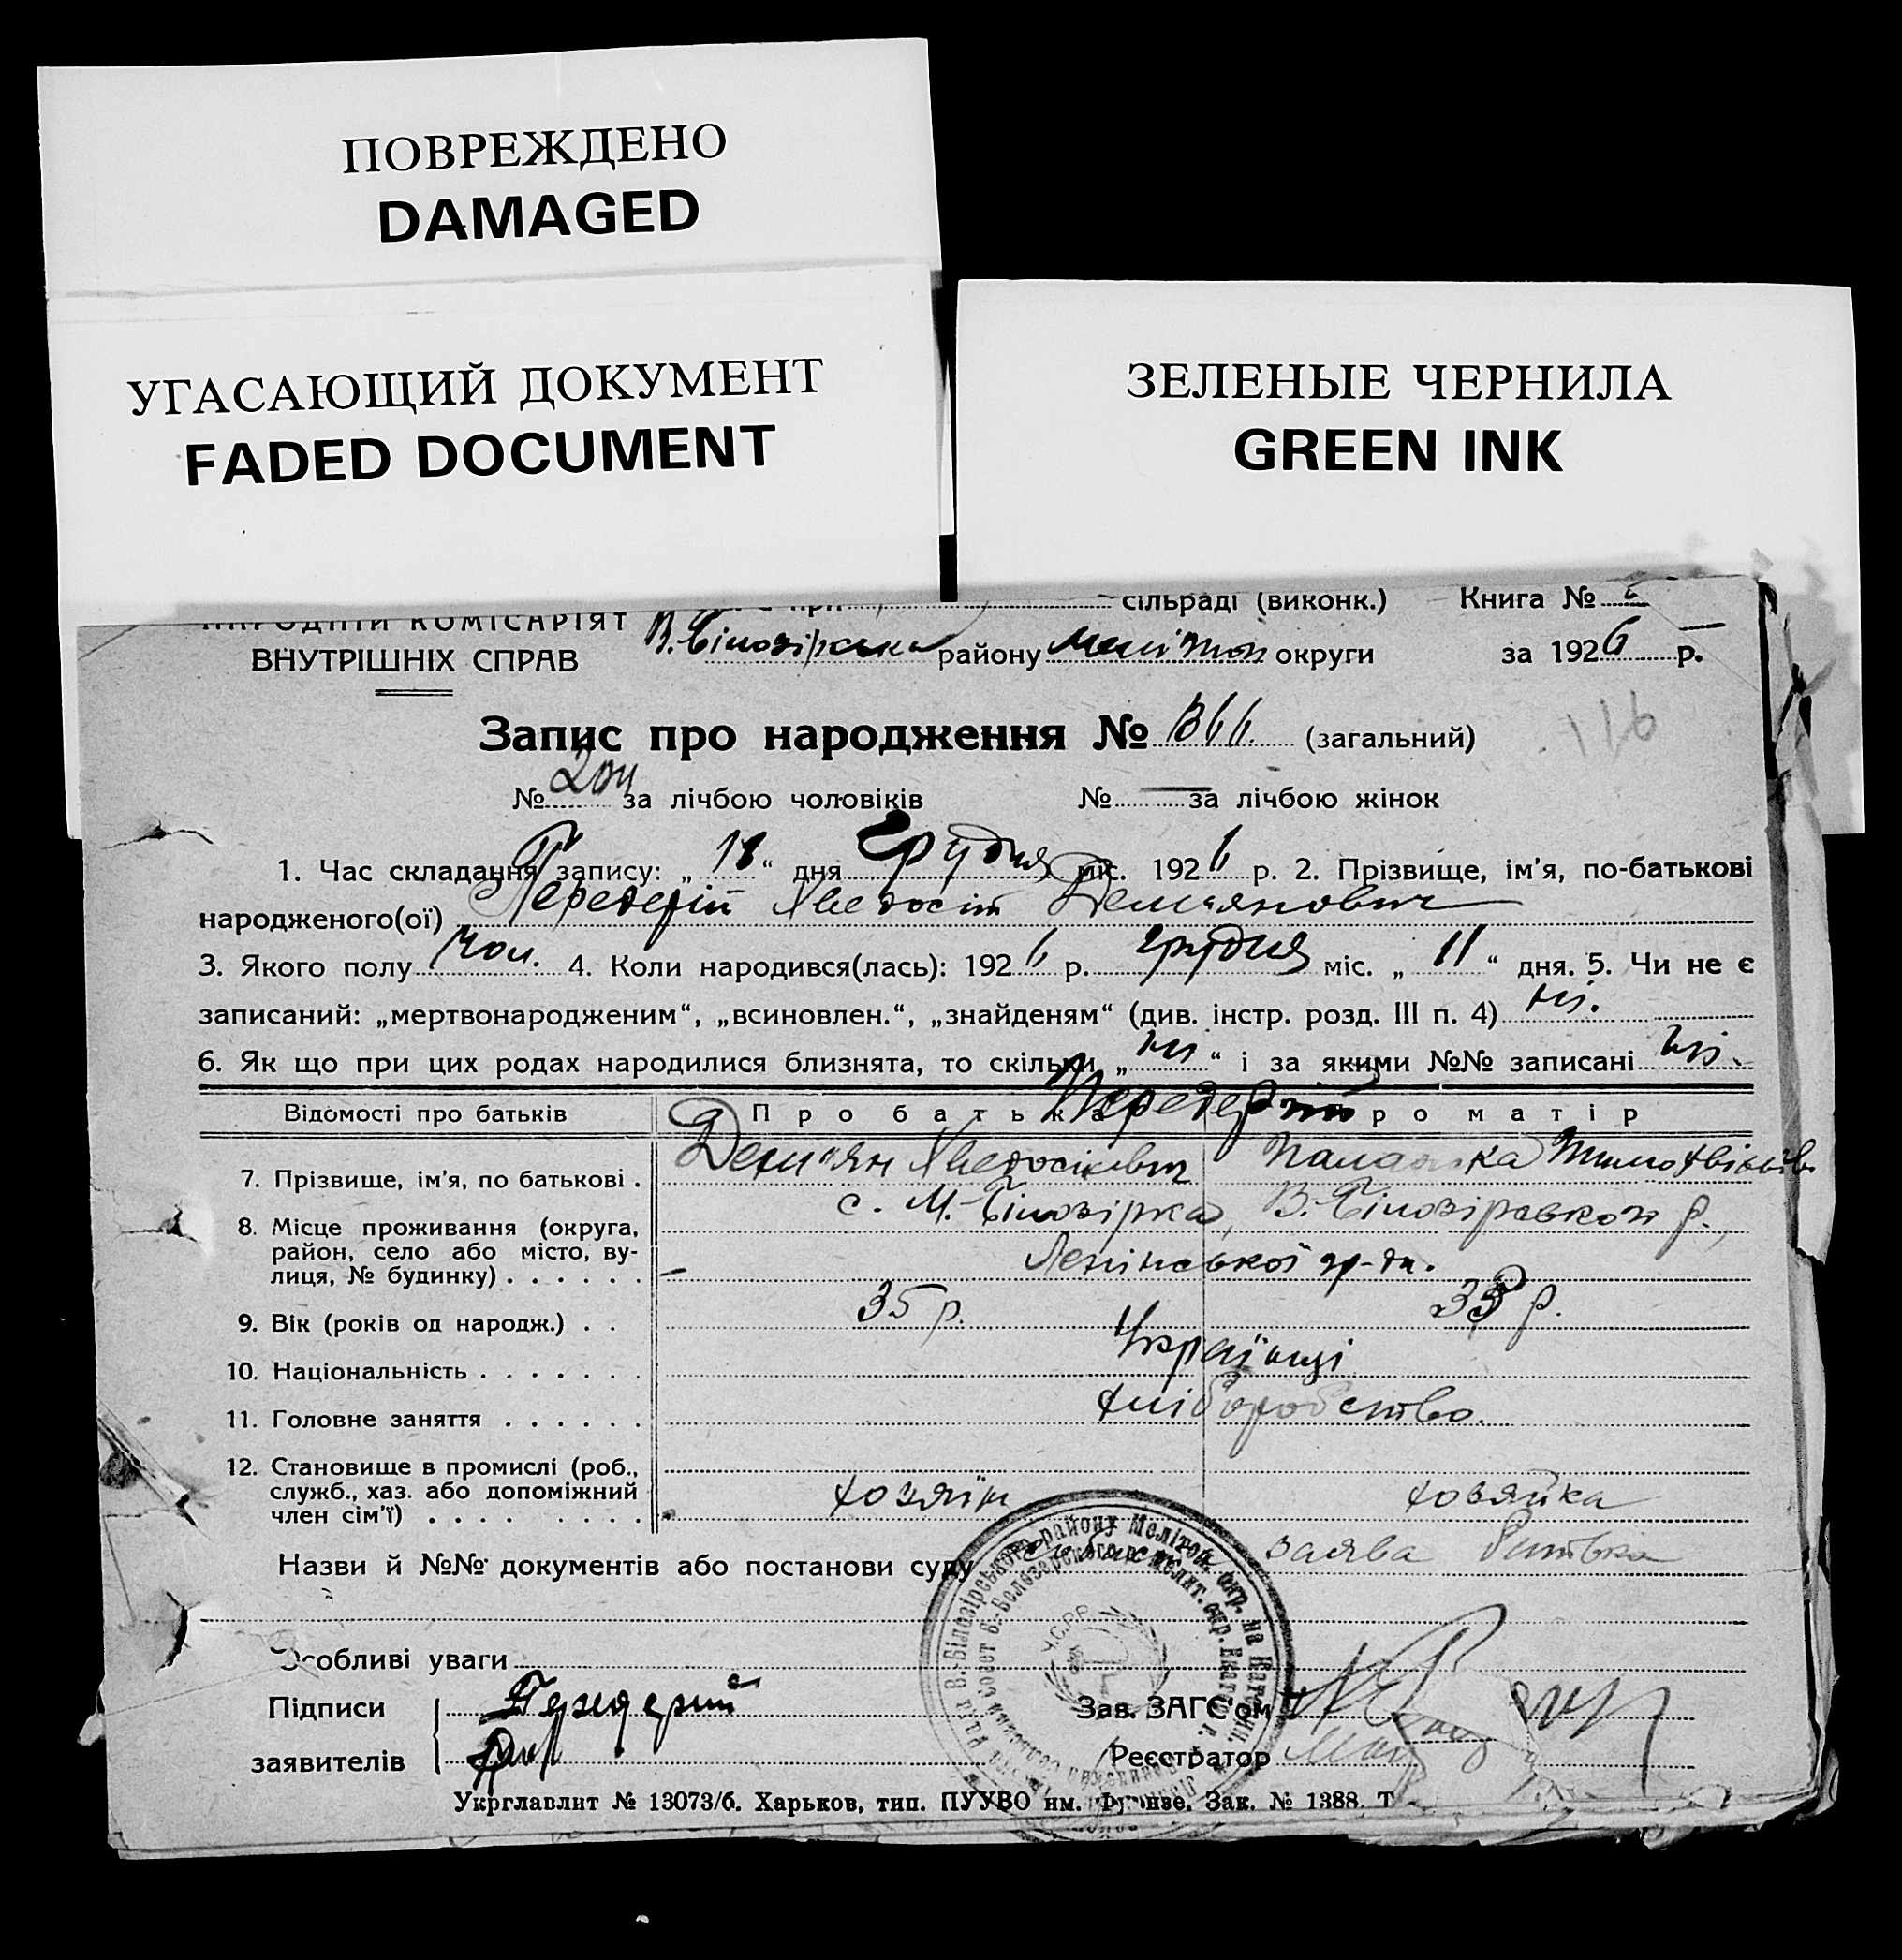 ПОВРЕЖДЕНО
DAMAGED
УГАСАЮЩИЙ ДОКУМЕНТ
FADED DOCUMENT
ЗЕЛЕНЫЕ ЧЕРНИЛА
GREEN INK
сільраді (виконк.) Книга №
КОМІСАРІЯТ
ВНУТРІШНІХ СПРАВ
району округи за 1926 р.
116
Запис про народження № 366. (загальний)
№ за лічбою чоловіків № — за лічбою жінок
1. Час складання запису: „18“ дня Грудня міс. 1926 р. 2. Прізвище, ім'я, по-батькові
народженого(ої) Передерій Хведосій Демьянович
3. Якого полу чол. 4. Коли народився(лась): 1926 р. грудня міс. „11“ дня. 5. Чи не є
записаний: „мертвонародженим“, „всиновлен.“, „знайденям“ (див. інстр. розд. III п. 4) ні.
6. Як що при цих родах народилися близнята, то скільки „ні“ і за якими №№ записані ні.
Відомості про батьків Про батька Про матір
Передерій
7. Прізвище, ім'я, по батькові . Демьян Хведосієвич
8. Місце проживання (округа, район, село або місто, вулиця, № будинку) с. М.-Білозірка, В.-Білозі р.,
9. Вік (років од народж.) . . 35 р. р.
10. Національність Українці
11. Головне заняття хліборобство.
12. Становище в промислі (роб., служб., хаз. або допоміжний член сім'ї) хозяїн хозяйка
Назви й №№ документів або постанови суду заява батька
Особливі уваги
Підписи Передерій Зав. ЗАГС'ом
заявителів Реєстратор
Укрглавлит № 13073/б. Харьков, тип. ПУУВО им. Фрунзе. Зак. № 1388. Т